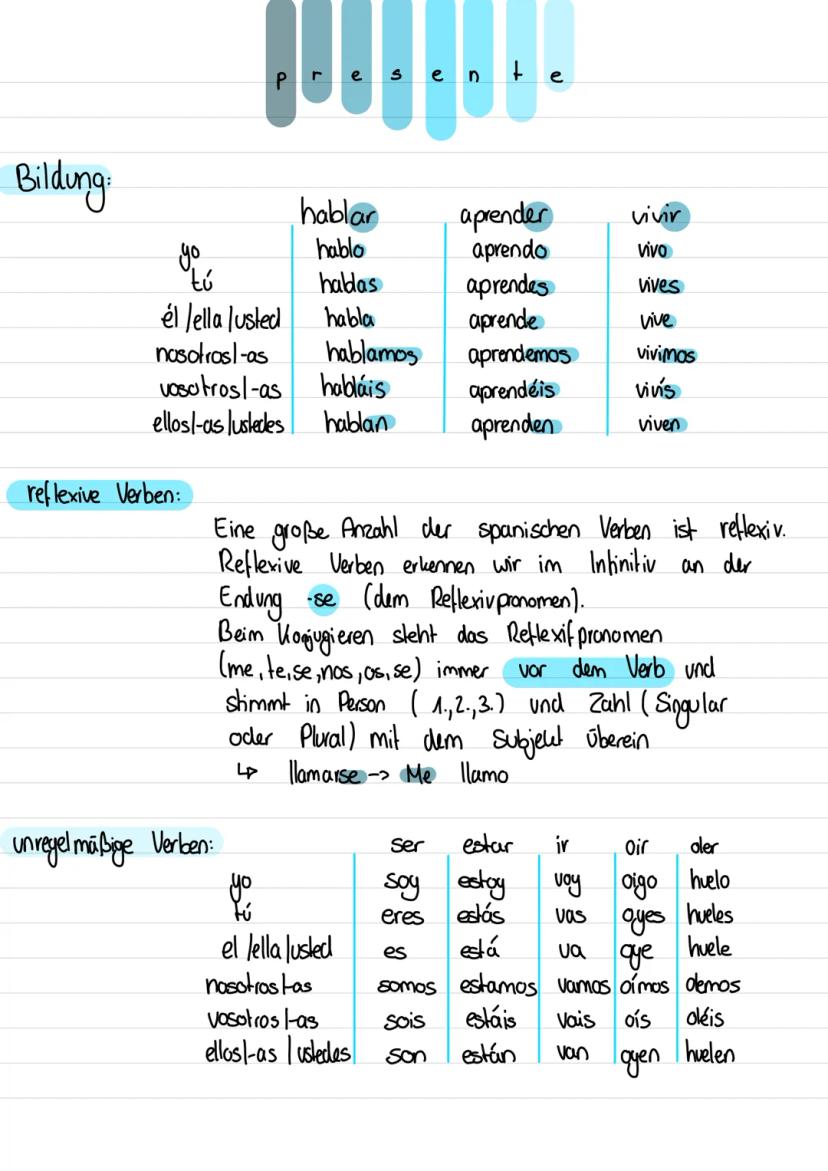 presente
Bildung:
hablar aprender vivir
yo hablo aprendo vivo
tú hablas aprendes vives
él/ella/usted habla aprende vive
nosotros/-as hablamos aprendemos vivimos
vosotros/-as habláis aprendéis vivís
ellos/-as/ustedes hablan aprenden viven
reflexive Verben:
Eine große Anzahl der spanischen Verben ist reflexiv.
Reflexive Verben erkennen wir im Infinitiv an der
Endung -se (dem Reflexivpronomen).
Beim Konjugieren steht das Reflexifpronomen
(me, te, se, nos, os, se) immer vor dem Verb und
stimmt in Person (1., 2., 3.) und Zahl (Singular
oder Plural) mit dem Subjekt überein
↳ llamarse -> Me llamo
unregelmäßige Verben: ser estar ir oir oler
yo soy estoy voy oigo huelo
tú eres estás vas oyes hueles
el/ella/usted es está va oye huele
nosotros/-as somos estamos vamos oímos olemos
vosotros/-as sois estáis vais oís oléis
ellos/-as/ustedes son están van oyen huelen